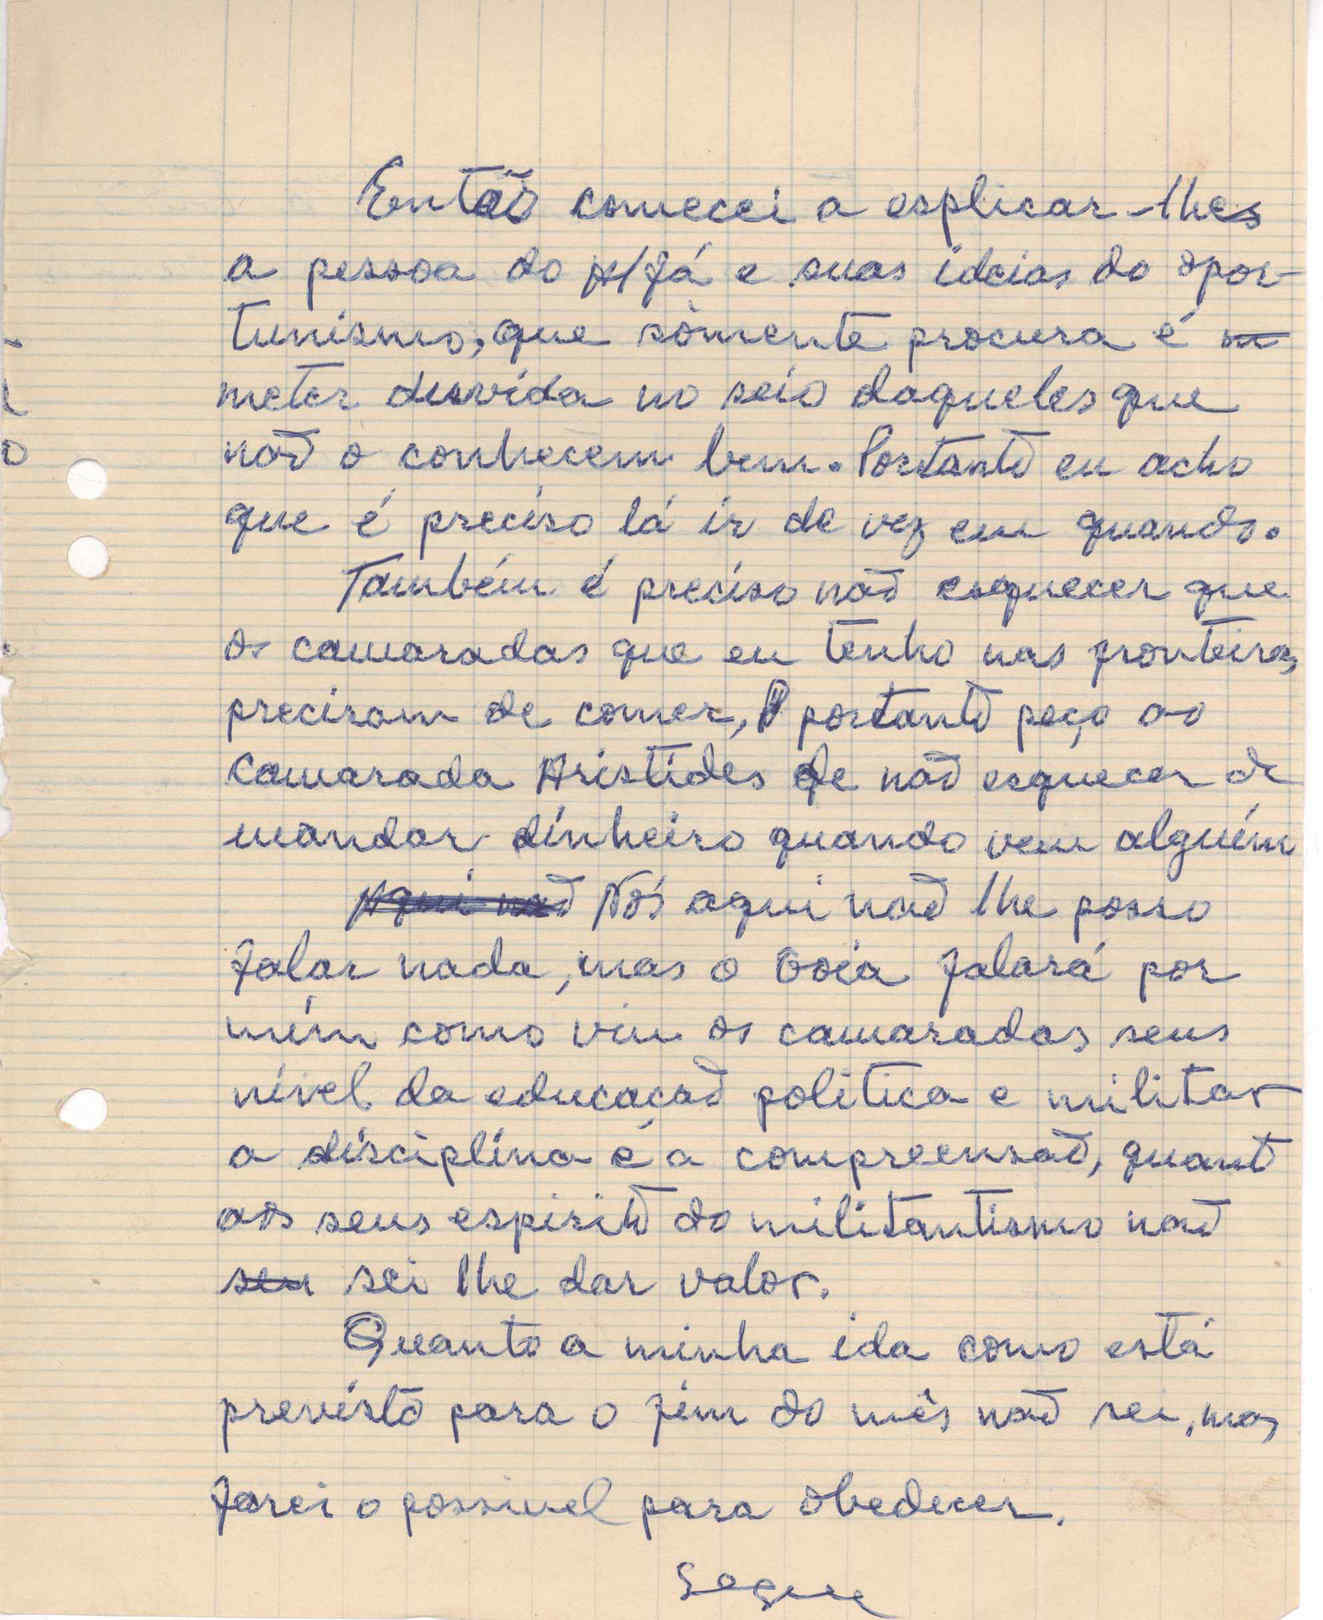 Então comecei a esplicar-lhes
a pessoa do A/Já e suas ideias do opor-
tunismo, que sòmente procura é m
meter duvida no seio daqueles que
não o conhecem bem. Portanto eu acho
que é preciso lá ir de vez em quando.
Também é preciso não esquecer que
os camaradas que eu tenho nas fronteiras
precisam de comer, portanto peço ao
camarada Aristides de não esquecer de
mandar dinheiro quando vem alguém
Aqui não Nós aqui não lhe posso
falar nada, mas o Goia falará por
mím como viu os camaradas seus
nível da educação politica e militar
a disciplína é a compreensão, quanto
aos seus espirito do militantismo não
seu sei lhe dar valor.
Quanto a minha ida como está
previsto para o fím do mês não sei, mas
farei o possivel para obedecer.
Segue